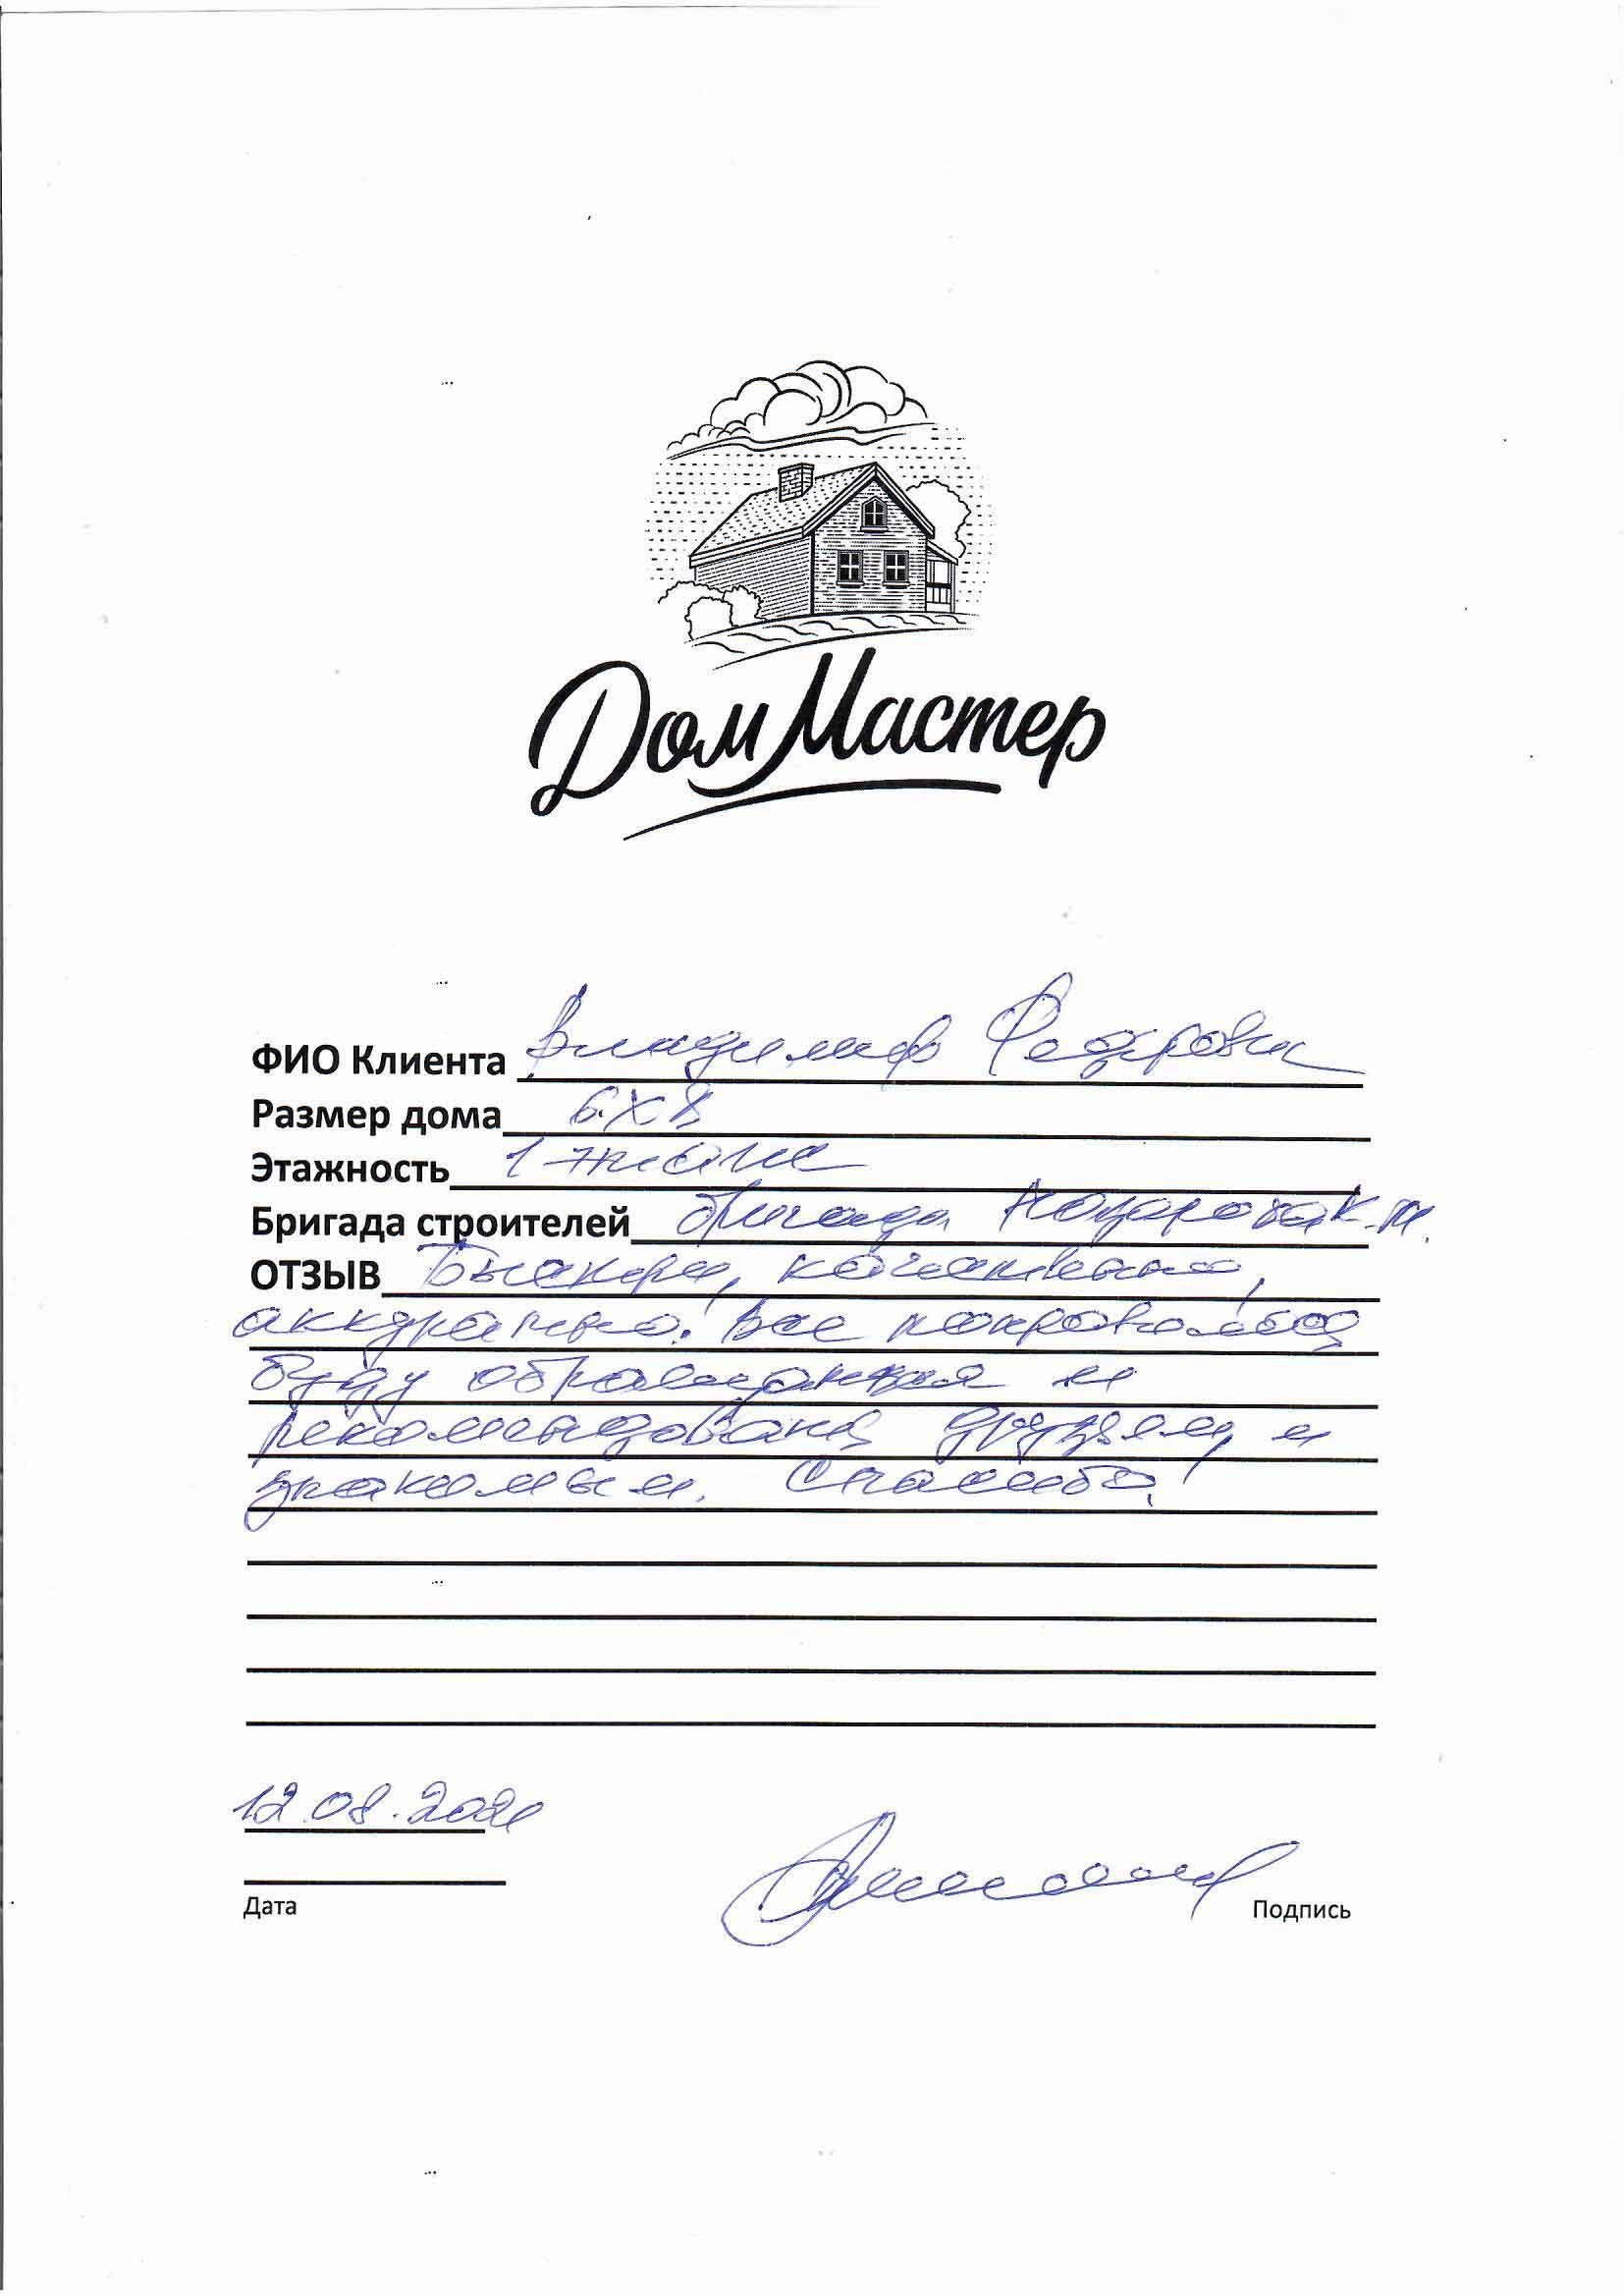 ДомМастер
ФИО Клиента Владимир Федрови
Размер дома 6х8
Этажность 1 этаж
Бригада строителей бригада
ОТЗЫВ Быстро, качественно,
аккуратно! Все понравилось
буду обращаться и
рекомендовать друзьям и
знакомым. Спасибо!
12.08.202
Дата
Подпись